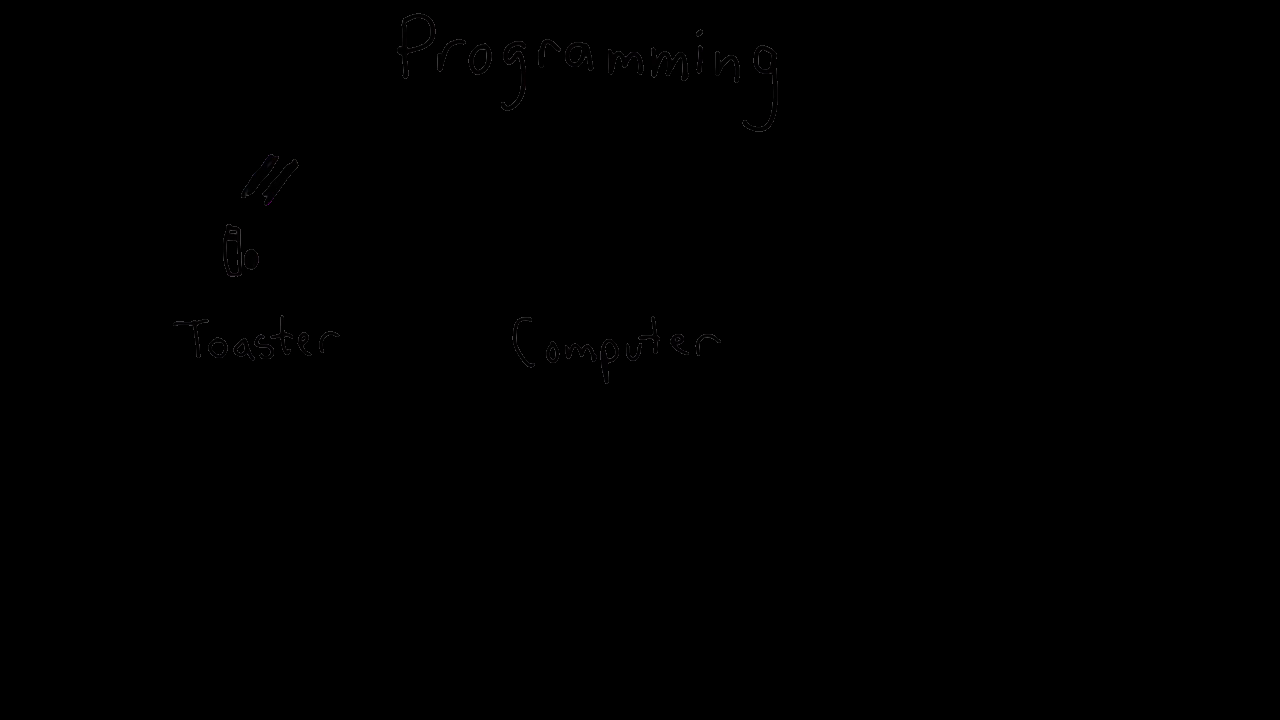 Programming
Toaster
Computer